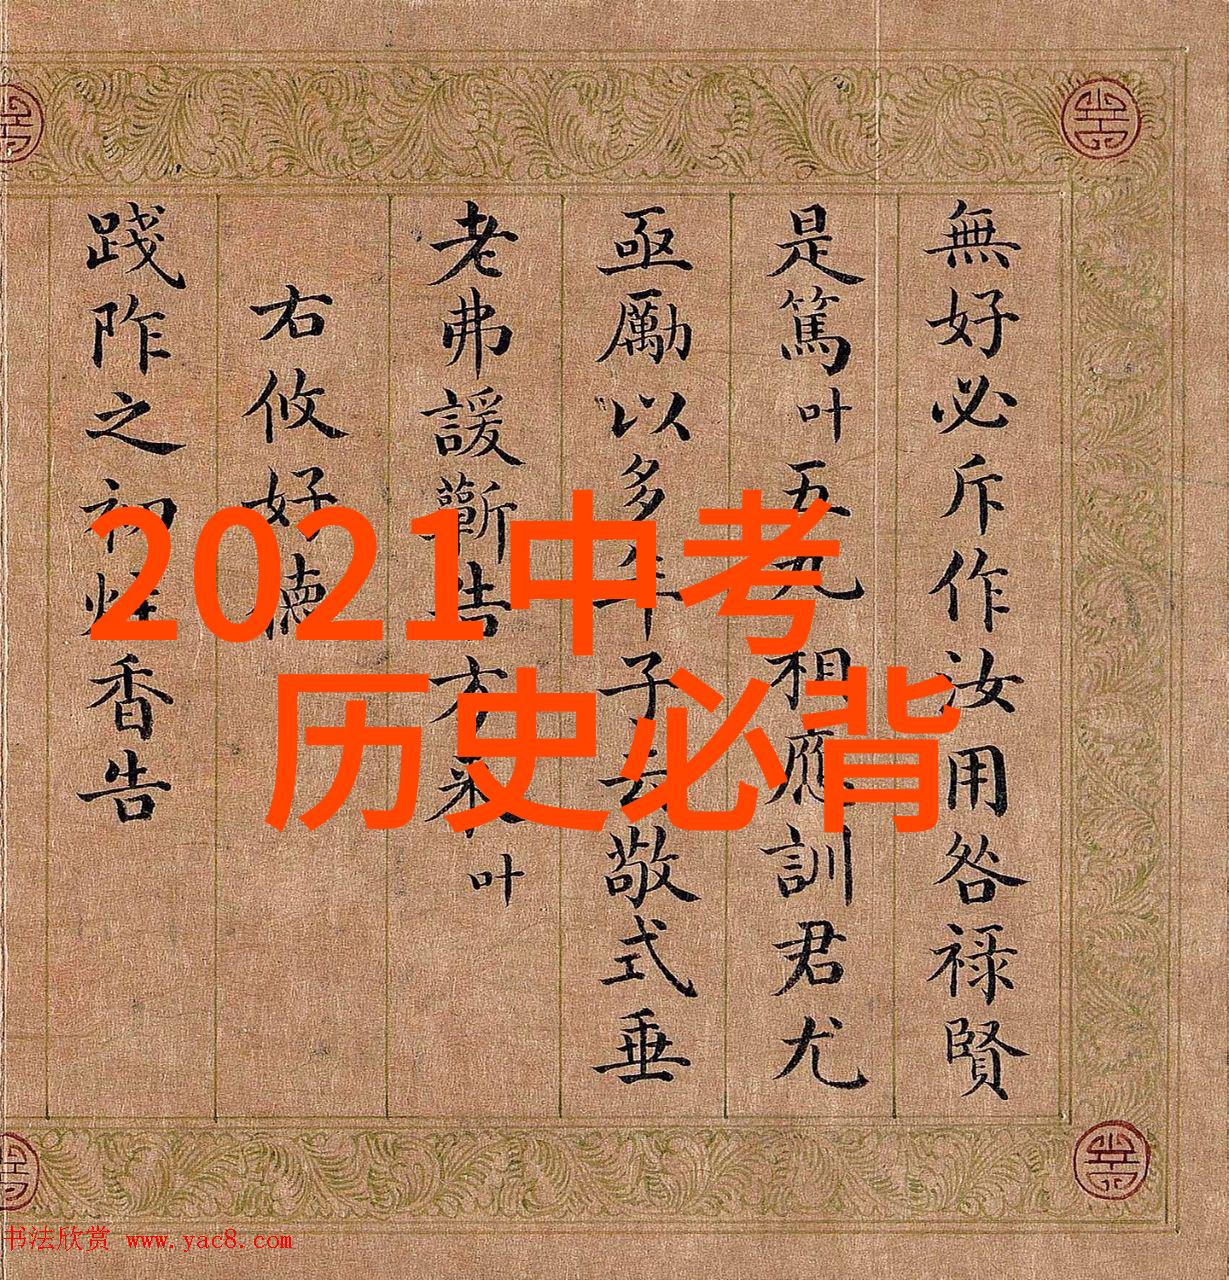 2021中考
历史必背
無好必斥作汝用咎禄賢
是篤叶五九相應訓君尤
亟勵以多年子云敬式垂
老弗諼蘄告方来叶
右攸好德
踐阼之初炷香告
书法欣赏 www.yac8.com